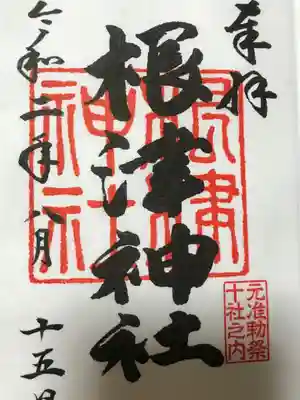 奉拝
根津神社
根津
神社
元准勅祭
十社之内
令和二年八月
十五日